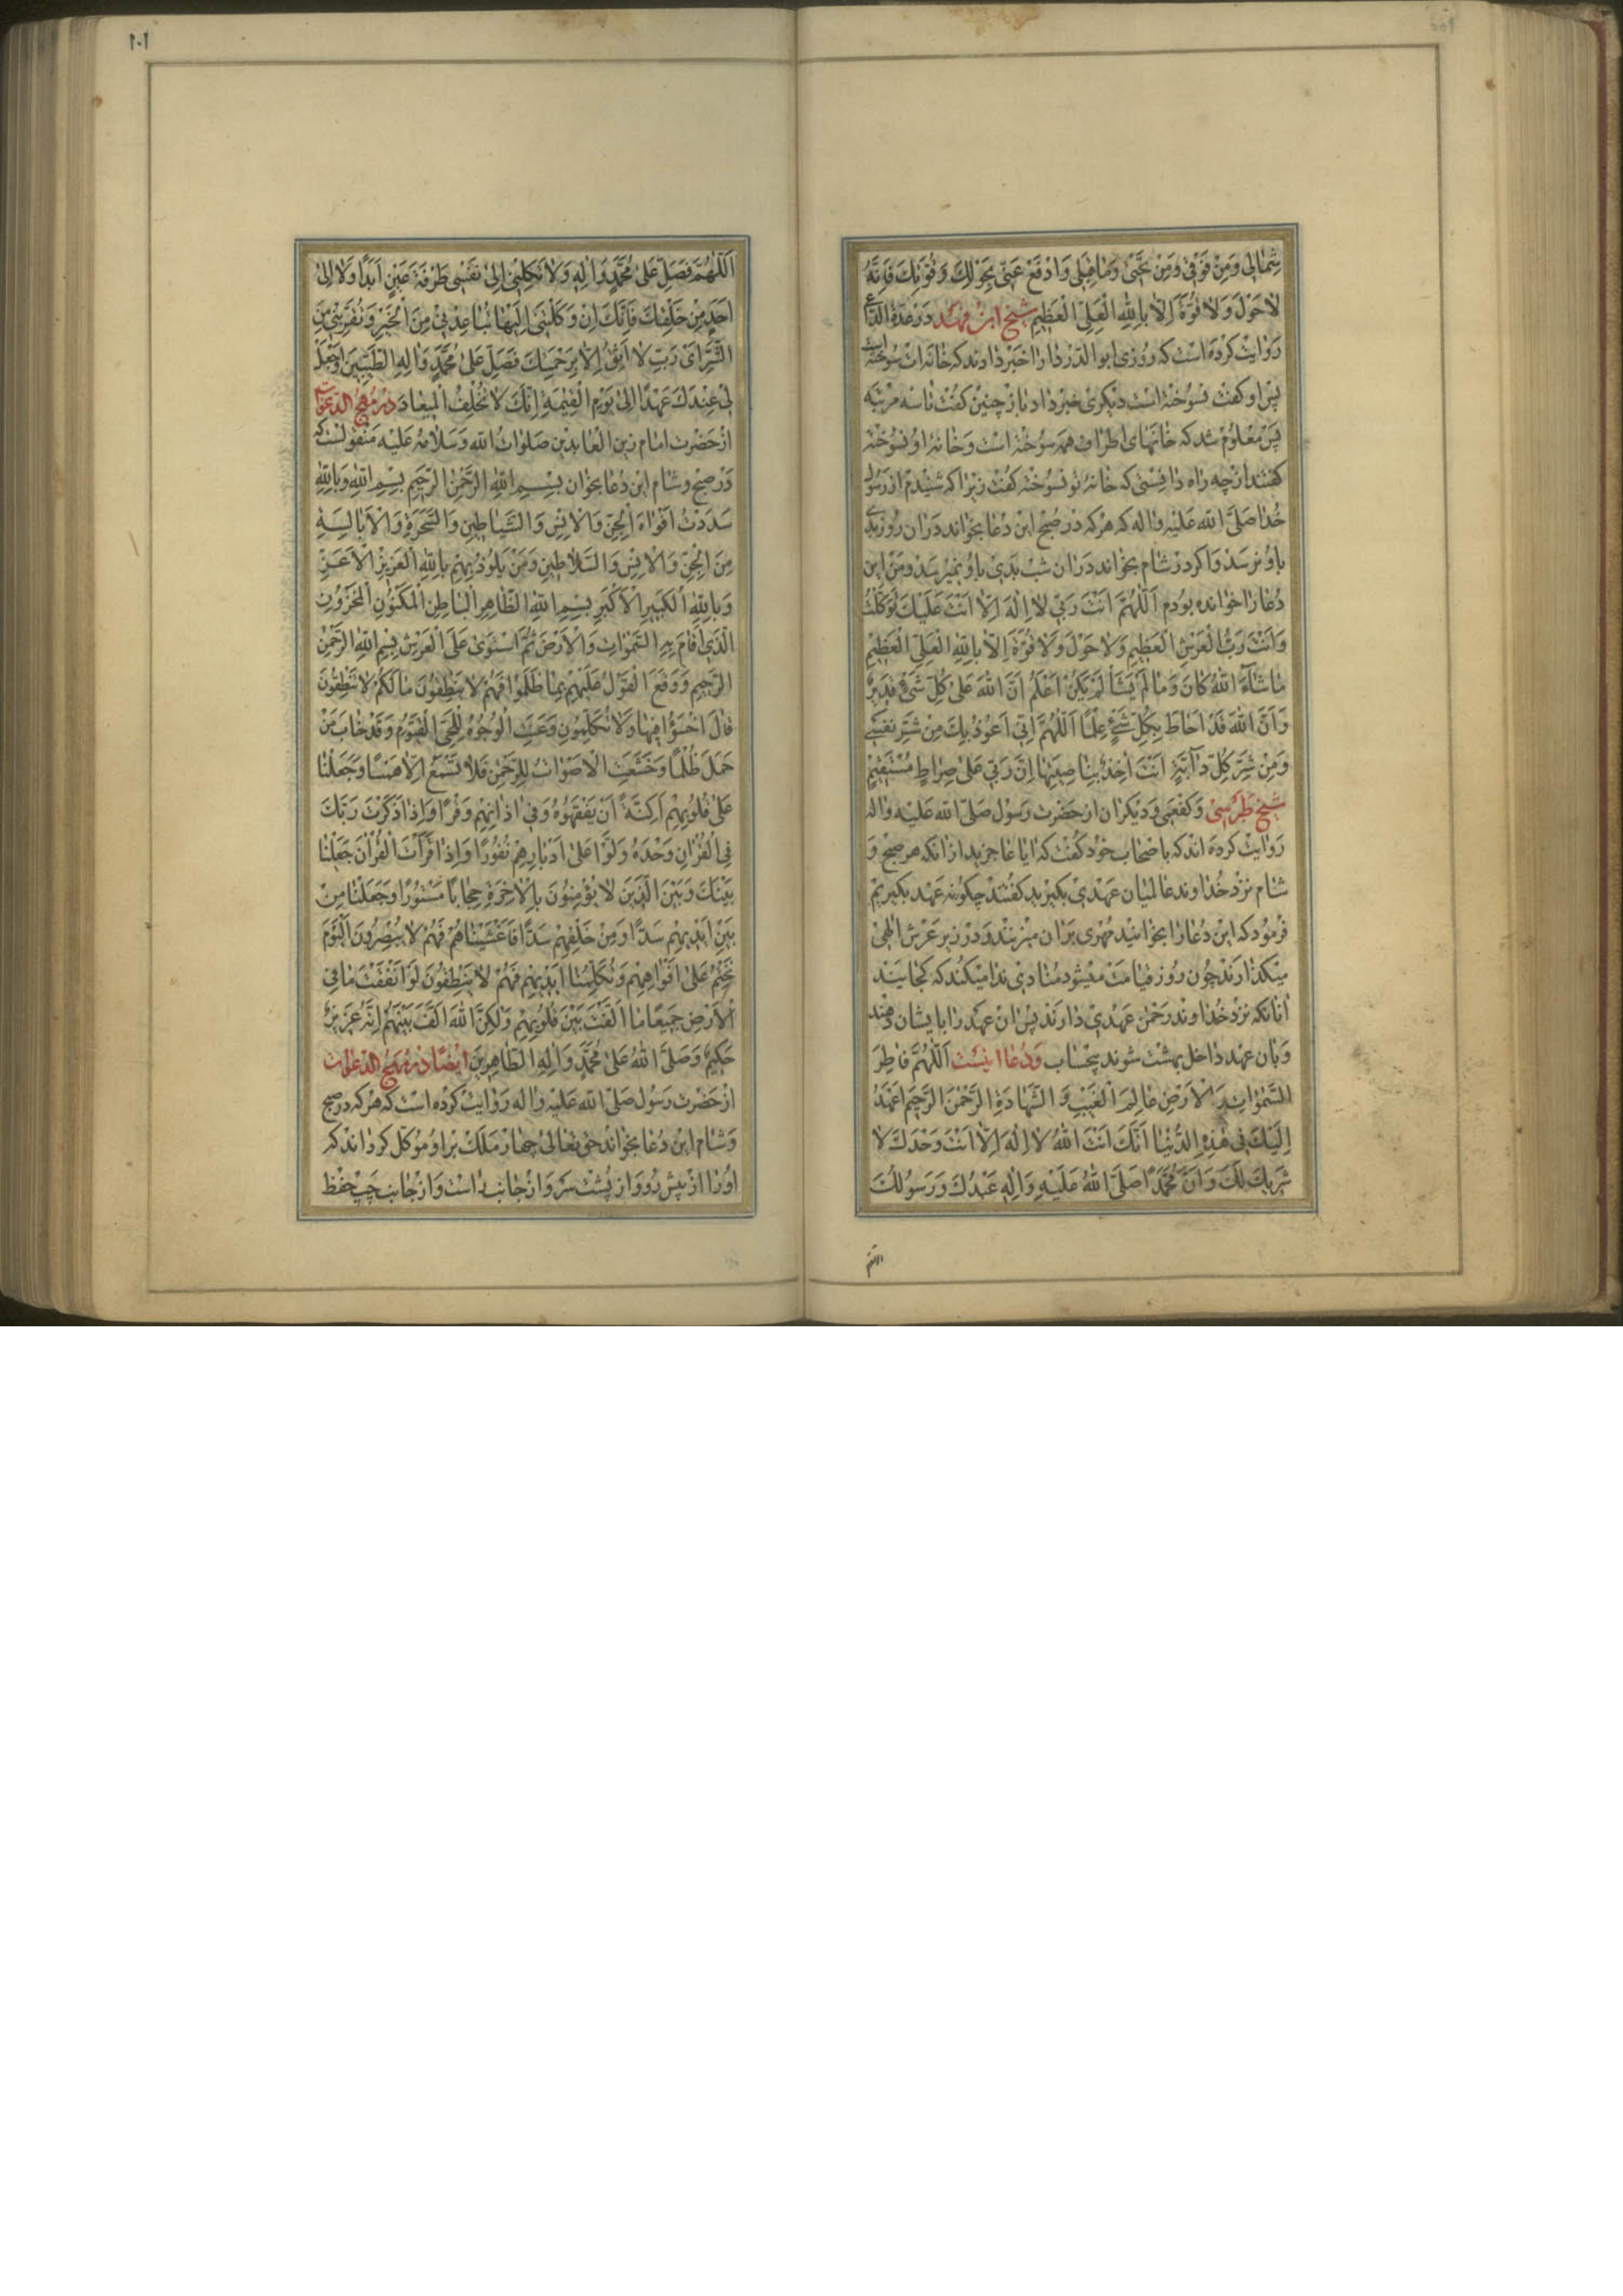 شِمٰالی وَمِنْ فَوْقی وَمِنْ تَحْتی وَمٰا قِبَلی وَادْفَعْ عَنّی بِحَوْلِكَ وَقُوَّتِكَ فَاِنَّهُ
لاٰحَوْلَ وَلاٰ قُوَّةَ اِلاّٰ بِاللّٰهِ الْعَلِیِّ الْعَظیمِ شیخ ابن فهد در عدة الداعی
روایت کرده است که روزی ابو الدردا را خبر دادند که خانه‌ات سوخته است
پس او گفت نسوخته است دیگری خبر داد باز چنین گفت تا سه مرتبه
پس معلوم شد که خانهای اطراف همه سوخته است و خانهٔ او نسوخته
گفتند از چه راه دانستی که خانهٔ تو نسوخته گفت زیرا که شنیدم از رسول
خدا صلّی الله علیه واله که هر که در صبح این دعا بخواند در ان روز بدی
باو نرسد واکر در شام بخواند دران شب بدی باو نمیرسد ومن این
دعا را خوانده بودم اَللّٰهُمَّ اَنْتَ رَبّی لاٰ اِلٰهَ اِلاّٰ اَنْتَ عَلَیْكَ تَوَكَّلْتُ
وَاَنْتَ رَبُّ الْعَرْشِ الْعَظیمِ وَلاٰ حَوْلَ وَلاٰ قُوَّةَ اِلاّٰ بِاللّٰهِ الْعَلِیِّ الْعَظیمِ
مٰا شٰآءَ اللّٰهُ كٰانَ وَمٰا لَمْ یَشَأْ لَمْ یَكُنْ اَعْلَمُ اَنَّ اللّٰهَ عَلیٰ كُلِّ شَیْءٍ قَدیرٌ
وَاَنَّ اللّٰهَ قَدْ اَحٰاطَ بِكُلِّ شَیْءٍ عِلْمًا اَللّٰهُمَّ اِنّی اَعُوذُ بِكَ مِنْ شَرِّ نَفْسی
وَمِنْ شَرِّ كُلِّ دٰآبَّةٍ اَنْتَ اٰخِذٌ بِنٰاصِیَتِهٰا اِنَّ رَبّی عَلیٰ صِرٰاطٍ مُسْتَقیمٍ
شیخ طبرسی وکفعمی ودیکران از حضرت رسول صلّی الله علیه واله
روایت کرده اند که باصحاب خود گفت که ایا عاجزید از انکه هر صبح و
شام نزد خداوند عالمیان عهدی بکیرید گفتند چکونه عهد بکیریم
فرمود که این دعا را بخوانید مهری بران میزنند و در زیر عرش الٰهی
میکذارند چون روز قیامت میشود منادی ندا میکند که کجایند
انانکه نزد خداوند رحمن عهدی دارند پس ان عهد را بایشان دهند
وبان عهد داخل بهشت شوند بیحساب ودعا اینست اَللّٰهُمَّ فٰاطِرَ
السَّمٰوٰاتِ وَالْاَرْضِ عٰالِمَ الْغَیْبِ وَالشَّهٰادَةِ الرَّحْمٰنَ الرَّحیمَ اَعْهَدُ
اِلَیْكَ فی هٰذِهِ الدُّنْیٰا اَنَّكَ اَنْتَ اللّٰهُ لاٰ اِلٰهَ اِلاّٰ اَنْتَ وَحْدَكَ لاٰ
شَریكَ لَكَ وَاَنَّ مُحَمَّدًا صَلَّی اللّٰهُ عَلَیْهِ وَاٰلِهِ عَبْدُكَ وَرَسُولُكَ
اللهم
١٠١
اَللّٰهُمَّ فَصَلِّ عَلیٰ مُحَمَّدٍ وَاٰلِهِ وَلاٰ تَكِلْنی اِلیٰ نَفْسی طَرْفَةَ عَیْنٍ اَبَدًا وَلاٰ اِلیٰ
اَحَدٍ مِنْ خَلْقِكَ فَاِنَّكَ اِنْ وَكَلْتَنی اِلَیْهٰا تُبٰاعِدْنی مِنَ الْخَیْرِ وَتُقَرِّبْنی مِنَ
الشَّرِّ اَیْ رَبِّ لاٰ اَثِقُ اِلاّٰ بِرَحْمَتِكَ فَصَلِّ عَلیٰ مُحَمَّدٍ وَاٰلِهِ الطَّیِّبینَ وَاجْعَلْ
لی عِنْدَكَ عَهْدًا اِلیٰ یَوْمِ الْقِیٰمَةِ اِنَّكَ لاٰ تُخْلِفُ الْمیعٰادَ در مهج الدعوات
از حضرت امام زین العابدین صلوات الله وسلامه علیه منقولست که
در صبح وشام این دعا بخوان بِسْمِ اللّٰهِ الرَّحْمٰنِ الرَّحیمِ بِسْمِ اللّٰهِ وَبِاللّٰهِ
سَدَدْتُ اَفْوٰاهَ الْجِنِّ وَالْاِنْسِ وَالشَّیٰاطینِ وَالسَّحَرَةِ وَالْاَبٰالِسَةِ
مِنَ الْجِنِّ وَالْاِنْسِ وَالسَّلاٰطینِ وَمَنْ یَلُوذُ بِهِمْ بِاللّٰهِ الْعَزیزِ الْاَعَزِّ
وَبِاللّٰهِ الْكَبیرِ الْاَكْبَرِ بِسْمِ اللّٰهِ الظّٰاهِرِ الْبٰاطِنِ الْمَكْنُونِ الْمَخْزُونِ
الَّذی اَقٰامَ بِهِ السَّمٰوٰاتِ وَالْاَرْضَ ثُمَّ اسْتَویٰ عَلَی الْعَرْشِ بِسْمِ اللّٰهِ الرَّحْمٰنِ
الرَّحیمِ وَوَقَعَ الْقَوْلُ عَلَیْهِمْ بِمٰا ظَلَمُوا فَهُمْ لاٰ یَنْطِقُونَ مٰا لَكُمْ لاٰ تَنْطِقُونَ
قٰالَ اخْسَؤُا فیهٰا وَلاٰ تُكَلِّمُونِ وَعَنَتِ الْوُجُوهُ لِلْحَیِّ الْقَیُّومِ وَقَدْ خٰابَ مَنْ
حَمَلَ ظُلْمًا وَخَشَعَتِ الْاَصْوٰاتُ لِلرَّحْمٰنِ فَلاٰ تَسْمَعُ اِلاّٰ هَمْسًا وَجَعَلْنٰا
عَلیٰ قُلُوبِهِمْ اَكِنَّةً اَنْ یَفْقَهُوهُ وَفی اٰذٰانِهِمْ وَقْرًا وَاِذٰا ذَكَرْتَ رَبَّكَ
فِی الْقُرْاٰنِ وَحْدَهُ وَلَّوْا عَلیٰ اَدْبٰارِهِمْ نُفُورًا وَاِذٰا قَرَأْتَ الْقُرْاٰنَ جَعَلْنٰا
بَیْنَكَ وَبَیْنَ الَّذینَ لاٰ یُؤْمِنُونَ بِالْاٰخِرَةِ حِجٰابًا مَسْتُورًا وَجَعَلْنٰا مِنْ
بَیْنِ اَیْدیهِمْ سَدًّا وَمِنْ خَلْفِهِمْ سَدًّا فَاَغْشَیْنٰاهُمْ فَهُمْ لاٰ یُبْصِرُونَ اَلْیَوْمَ
نَخْتِمُ عَلیٰ اَفْوٰاهِهِمْ وَتُكَلِّمُنٰا اَیْدیهِمْ فَهُمْ لاٰ یَنْطِقُونَ لَوْ اَنْفَقْتَ مٰا فِی
الْاَرْضِ جَمیعًا مٰا اَلَّفْتَ بَیْنَ قُلُوبِهِمْ وَلٰكِنَّ اللّٰهَ اَلَّفَ بَیْنَهُمْ اِنَّهُ عَزیزٌ
حَكیمٌ وَصَلَّی اللّٰهُ عَلیٰ مُحَمَّدٍ وَاٰلِهِ الطّٰاهِرینَ ایضا در مهج الدعوات
از حضرت رسول صلّی الله علیه واله روایت کرده است که هر که در صبح
وشام این دعا بخواند حق تعالیٰ چهار ملك بر او موکل کرداند که
او را از پیش رو و از پشت سر و از جانب راست و از جانب چپ حفظ